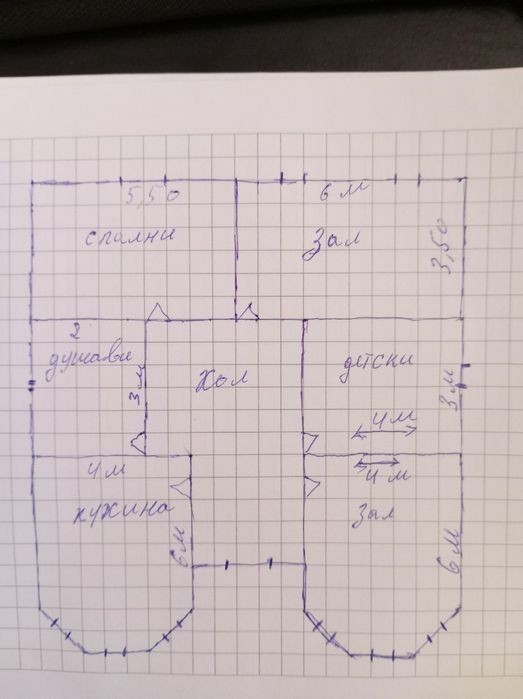 5,50
6 м
спални
Зал
3,50
2
душави
3 м
Хол
детски
3 м
4 м
4 м
4 м
кужина
Зыл
6 м
6 м